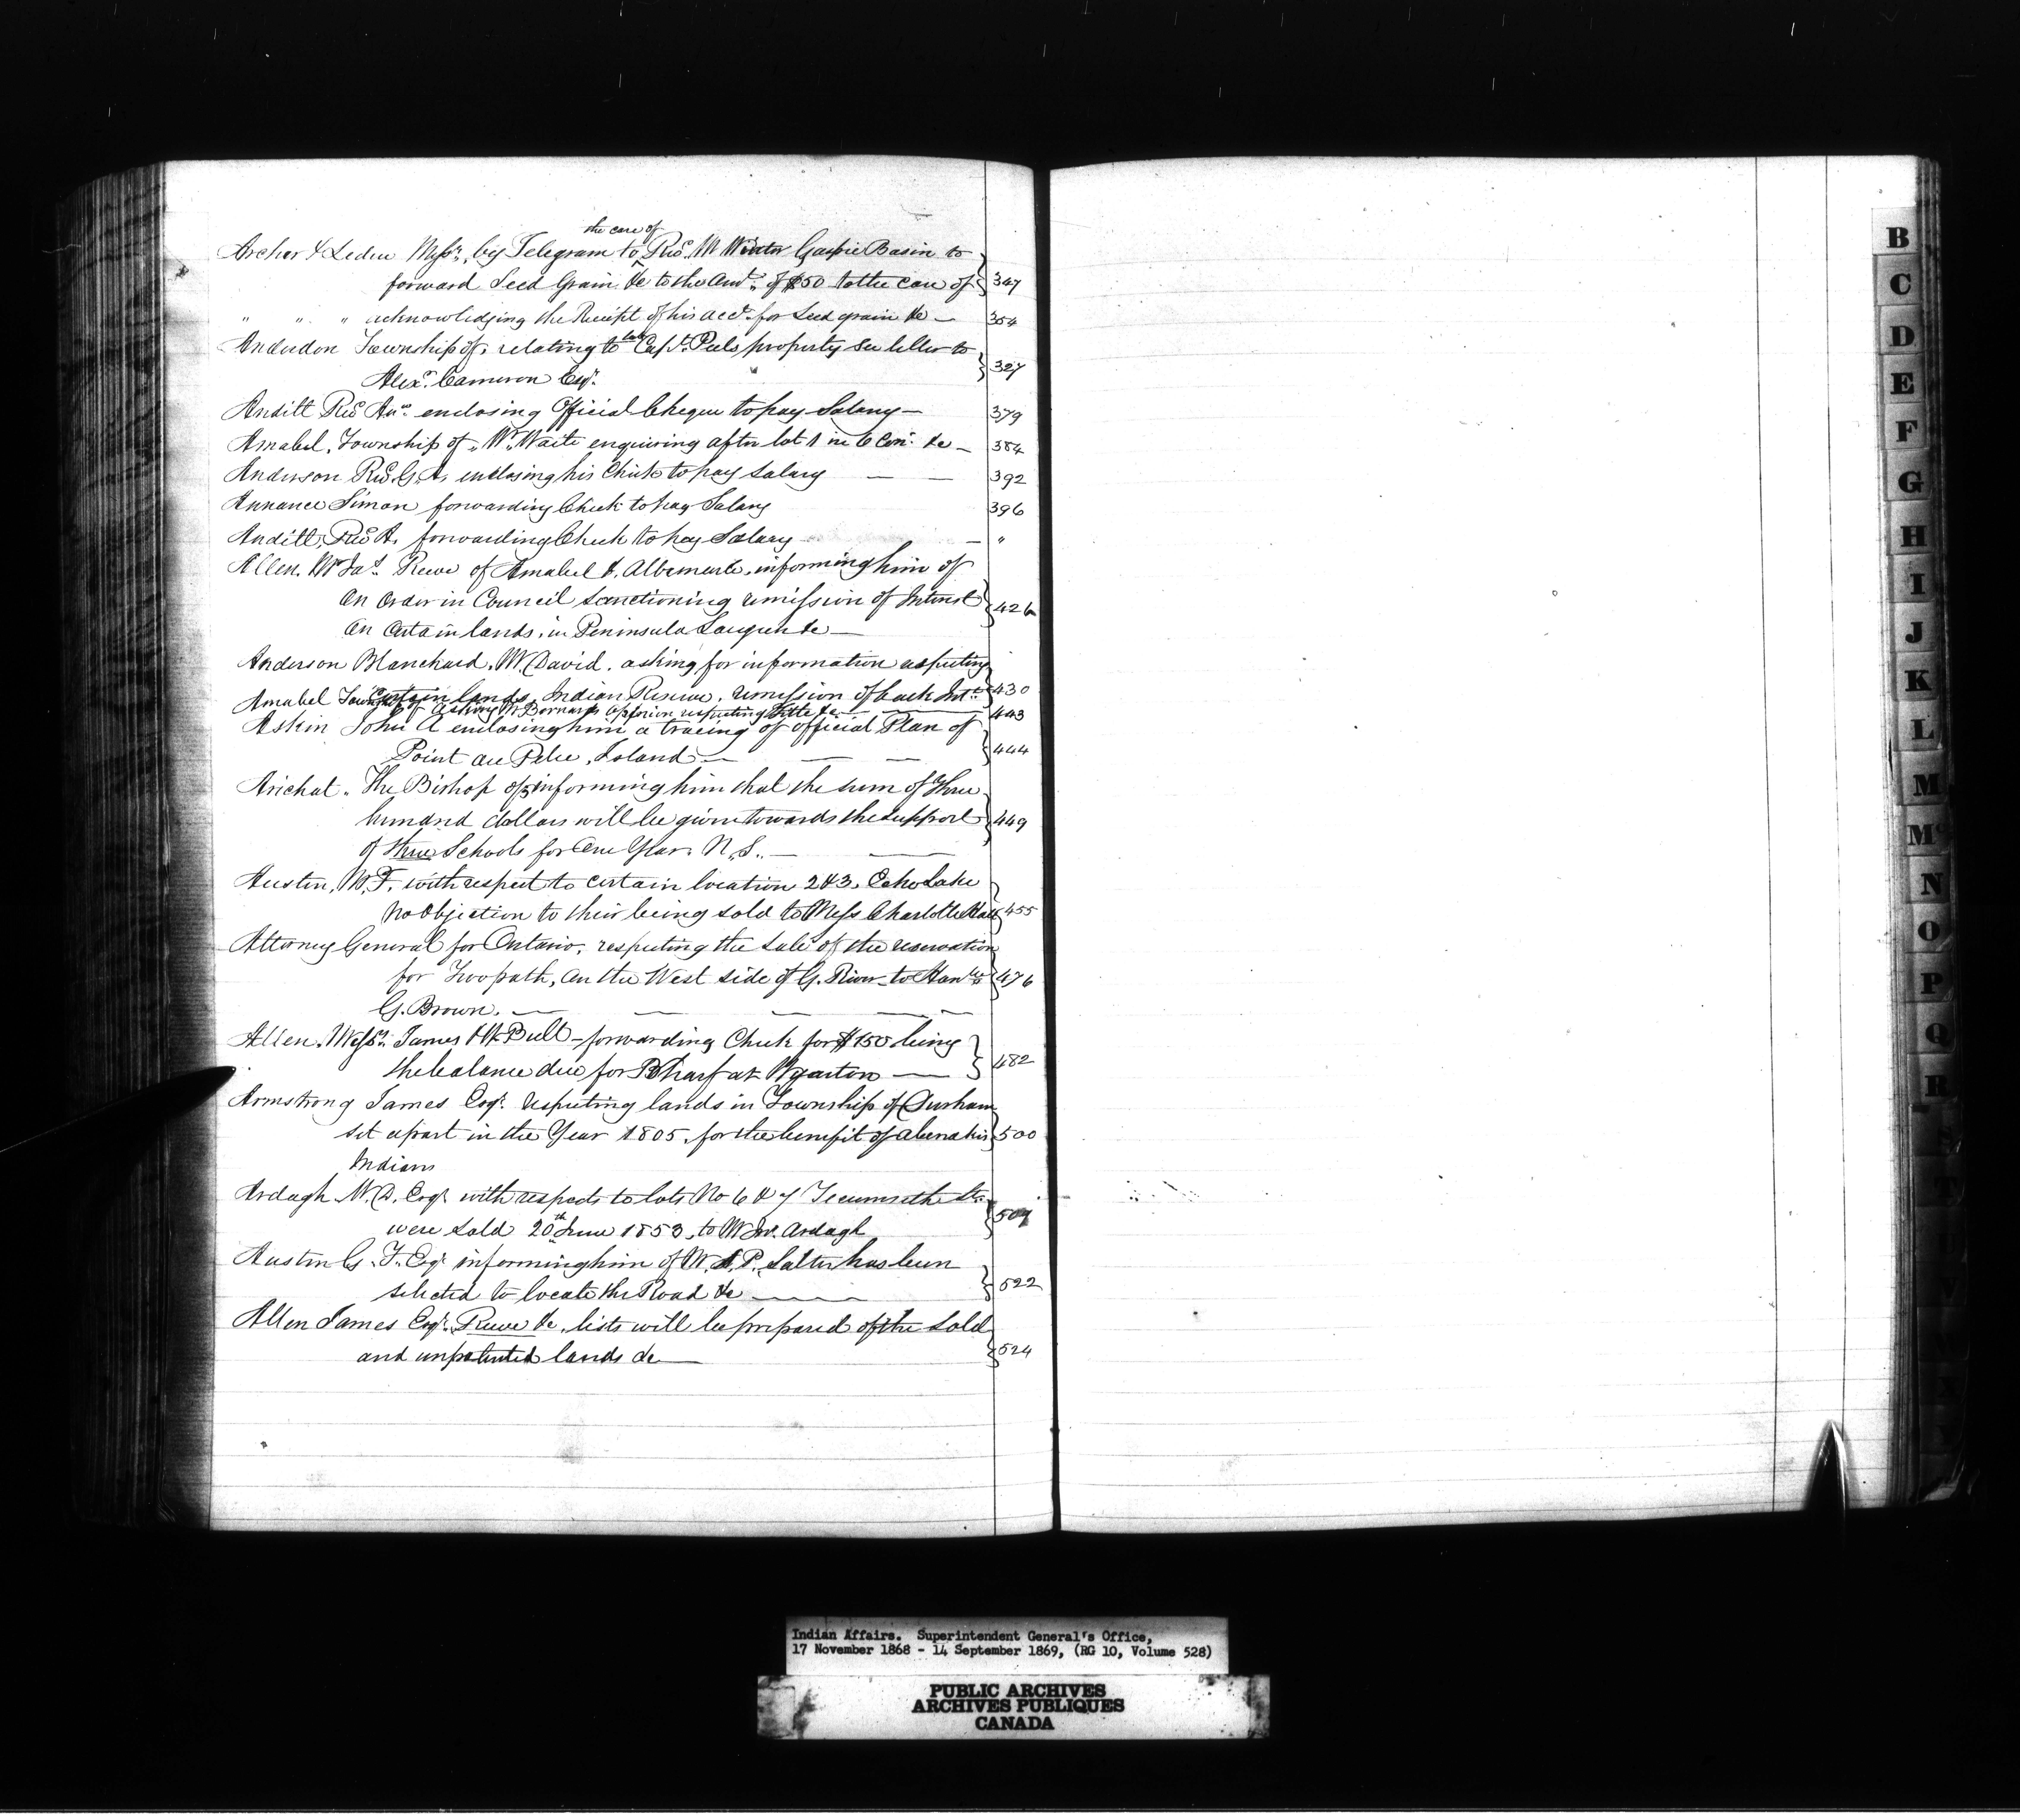 the care of
Archer & Leduc Messrs, by Telegram to Revd. Mr Winter Gaspie Basin to
forward Seed Grain &c to the Amt. of $50 to the care of 347
" " " acknowledging the Receipt of his acct. for seed grain &c — 354
Anderdon Township of, relating to late Capt. Peels property see letter to
Alexr. Cameron Esqr. 327
Revd enclosing Official Cheque to pay Salary — 379
Amabel, Township of, Wm. Waite enquiring after lot 1 in 6 Con. &c — 384
Anderson Revd. G. A. enclosing his Check to pay Salary — — 392
Annance Simon forwarding Check to pay Salary 396
Revd A. forwarding Check to pay Salary — "
Allen, Mr Jas. Reeve of Amabel & Albemarle, informing him of
an Order in Council sanctioning remission of Interest 426
on certain lands, in Peninsula Saugeen &c —
Anderson Blanchard, Mr. David. asking for information respecting
certain lands, Indian Reserve, remission of back Intt. 430
Amabel Township of Asking Mr Bernards Opinion respecting Title &c — 443
Askin John A enclosing him a tracing of official Plan of
Point au Pelee, Island — — — 444
Arichat. The Bishop of, informing him that the sum of three
hundred dollars will be given towards the support 449
of three Schools for One Year. N.S. — —
Austin, W. F. with respect to certain location 2 & 3, Echo Lake
no objection to their being sold to Miss Charlotte Hall 455
Attorney General for Ontario, respecting the sale of the reservation
for Towpath, on the West side of G. River to Honble 476
G. Brown. — — — —
Allen, Messrs. James & W Bull — forwarding Check for $150 being
the balance due for Wharf at Wyarton — 482
Armstrong James Esqr. respecting lands in Township of Durham
set apart in the Year 1805, for the benefit of Abenakis 500
Indians
Ardagh W. D. Esqr. with respects to lots No 6 & 7 Tecumseth St.
were sold 20th June 1853, to Mr Jno. Ardagh 507
Austin G. F. Esqr informing him of Mr. A. P. Salter has been
selected to locate the Road &c — 522
Allen James Esqr. Reeve &c, lists will be prepared of the sold
and unpatented lands &c — 524
B
C
D
E
F
G
H
I
J
K
L
M
Mc
N
O
P
Q
R
S
T
U
V
W
X
Indian Affairs. Superintendent General's Office,
17 November 1868 - 14 September 1869, (RG 10, Volume 528)
PUBLIC ARCHIVES
ARCHIVES PUBLIQUES
CANADA